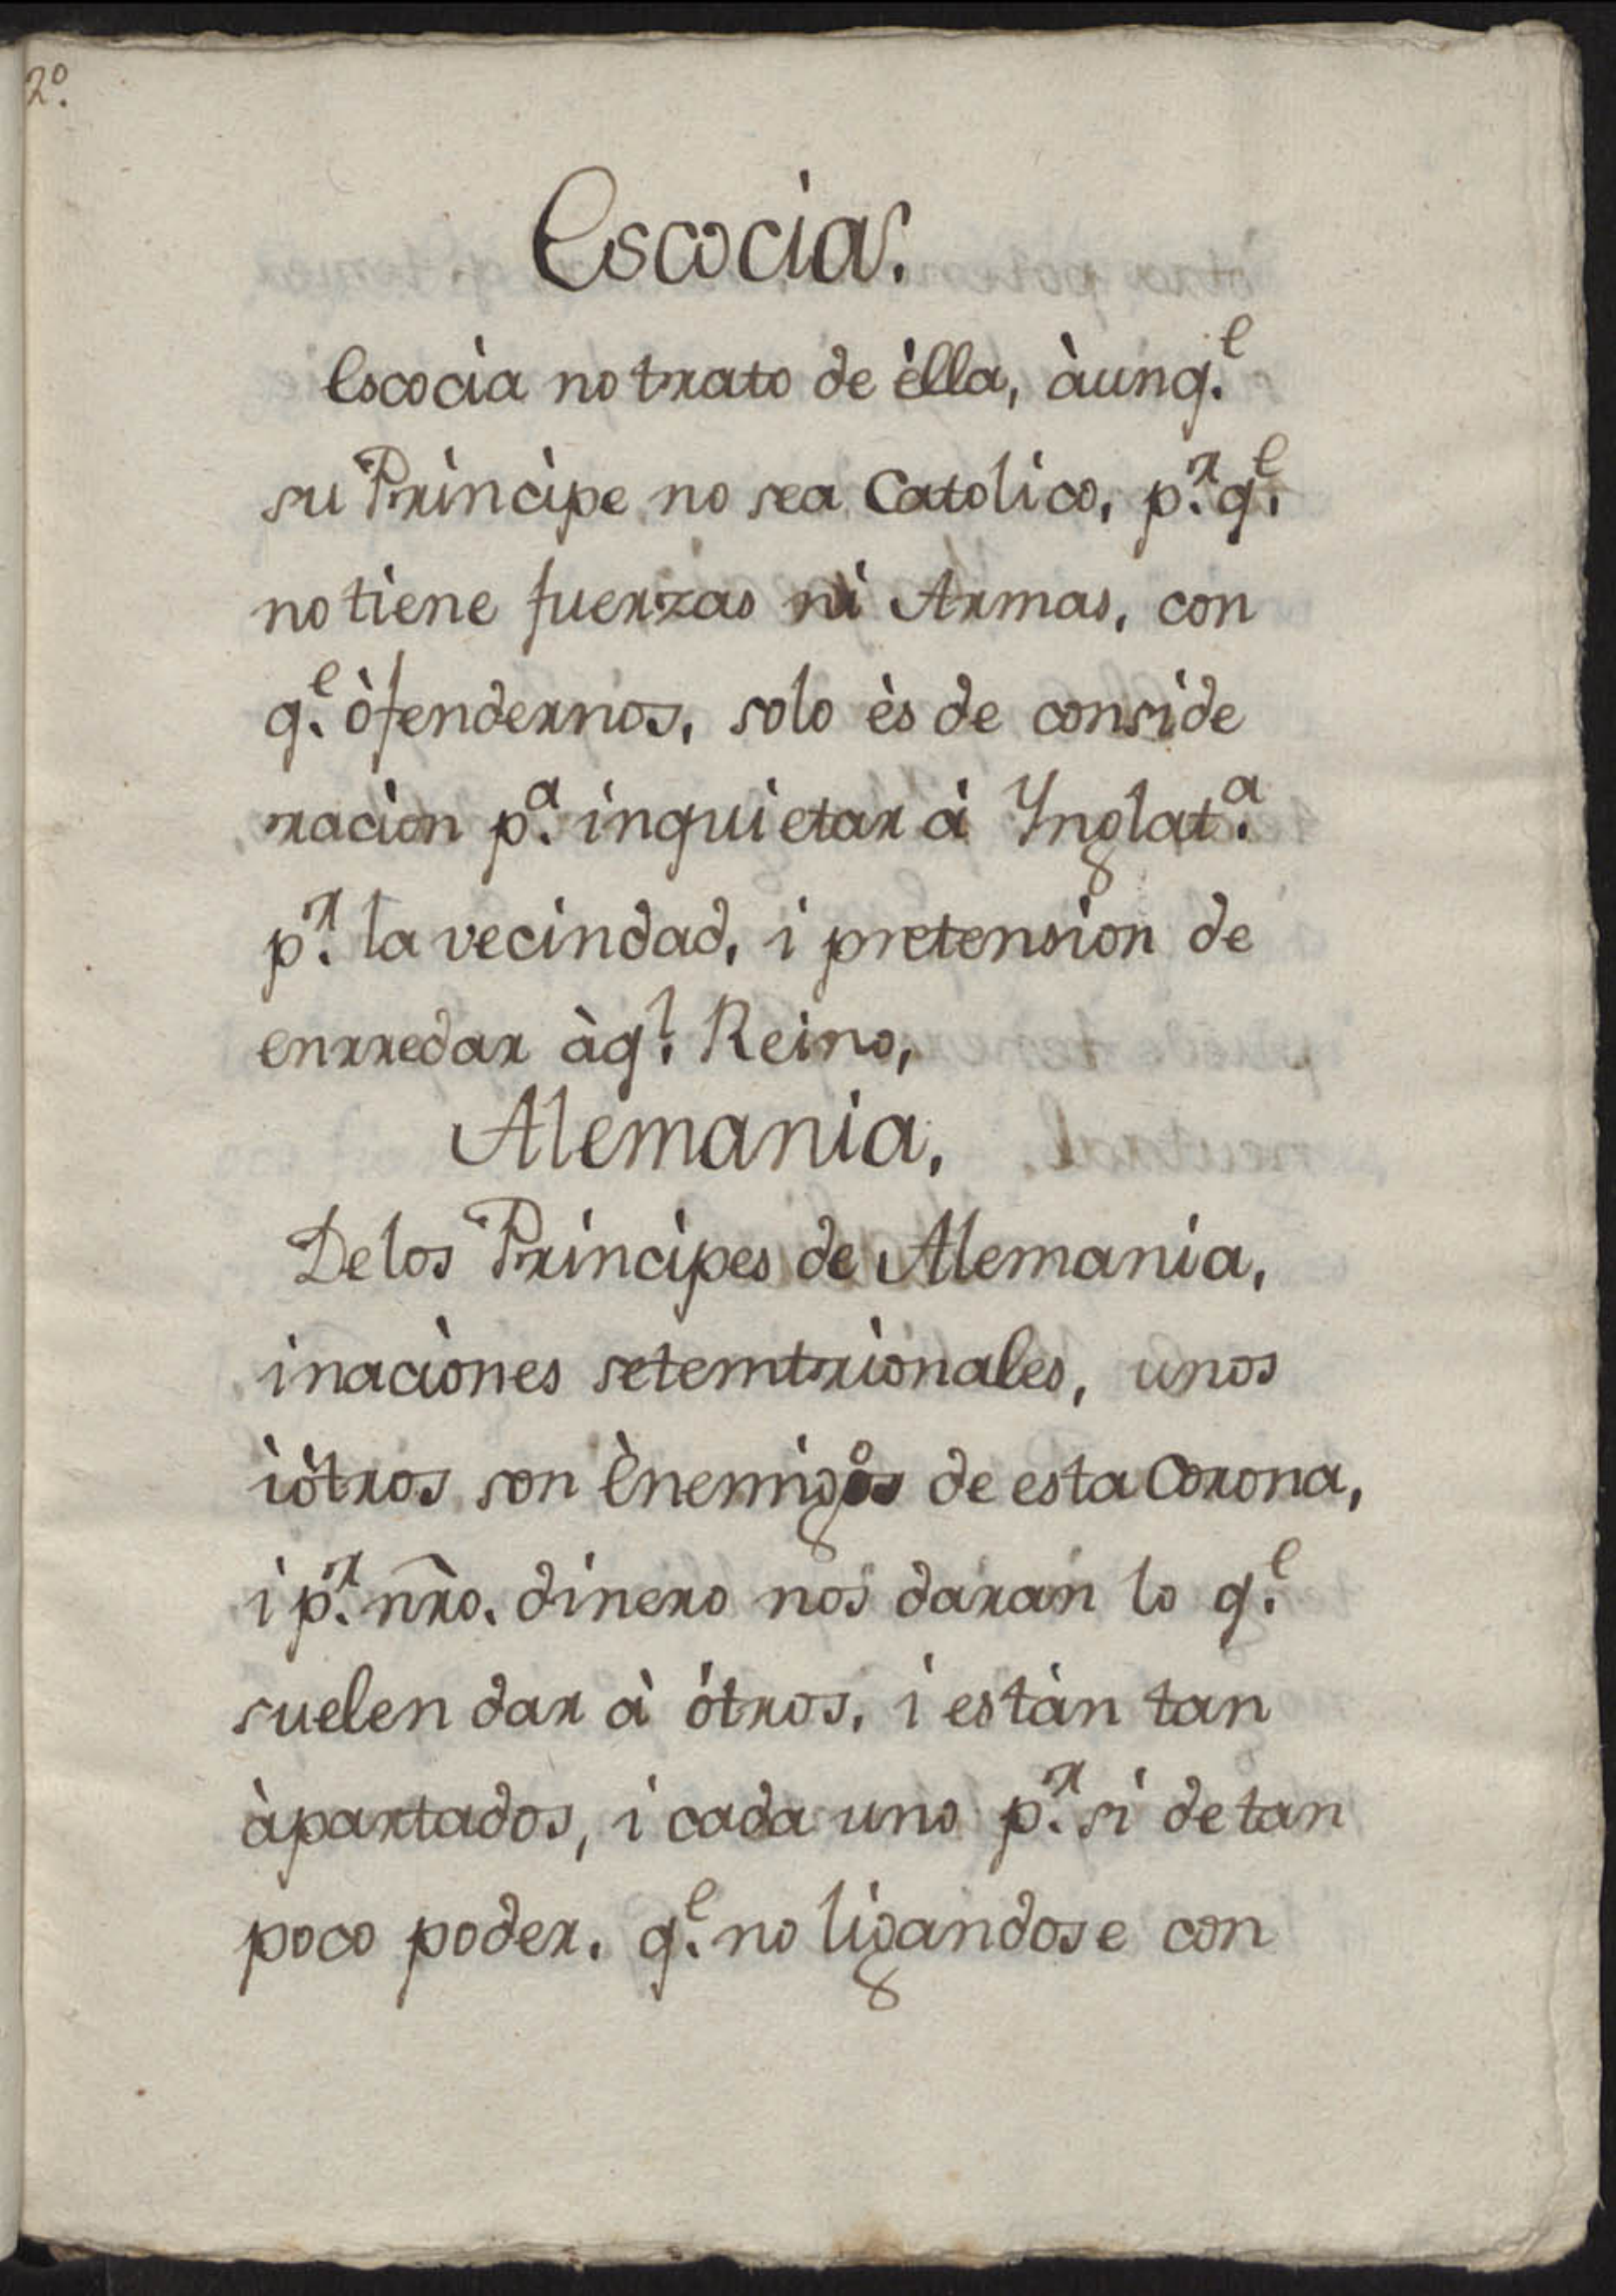 2º.
Escocia.
Escocìa no trato de èlla, àunq.ᵉ
su Prìncipe no sea Catolico, p.ʳ q.ᵉ
no tiene fuerzas ni Armas, con
q.ᵉ òfendernos, solo ès de conside
racion p.ª inquietar à Ynglat.ª
p.ʳ la vecindad, i pretension de
enrredar àq.ˡ Reino,
Alemania,
De los Prìncipes de Alemania,
i naciònes setemtrìonales, unos
ì òtros son Ènemigos de esta Corona,
i p.ʳ nr̃o. dinero nos daràn lo q.ᵉ
suelen dar à òtros, i estàn tan
àpartados, i cada uno p.ʳ si de tan
poco poder. q.ᵉ no ligandose con